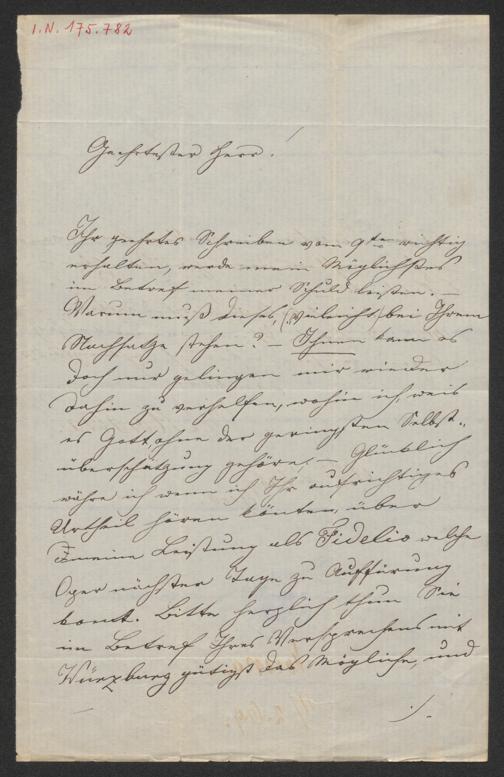 I.N. 175.782
Geehrtester Herr!
Ihr geehrtes Schreiben vom 9ten richtig
erhalten, werde mein Möglichstes
im Betref meiner Schuld leisten. –
Warum muß dieses, (vieleicht) bei Ihrem
Nachsatze stehen? – Ihnen kann es
doch nur gelingen mir wieder
dahin zu verhelfen, wohin ich, weis
es Gott, ohne der geringsten Selbst-
überschätzung gehöre, – Glücklich
währe ich wenn ich Ihr aufrichtiges
Urtheil hören könten, über
meine Leistung als Fidelio welche
Oper nächster Tage zu Auffürung
komt. Bitte herzlich thun Sie
im Betref Ihres Versprechens mit
Würzburg gütigst das Mögliche, und
./.